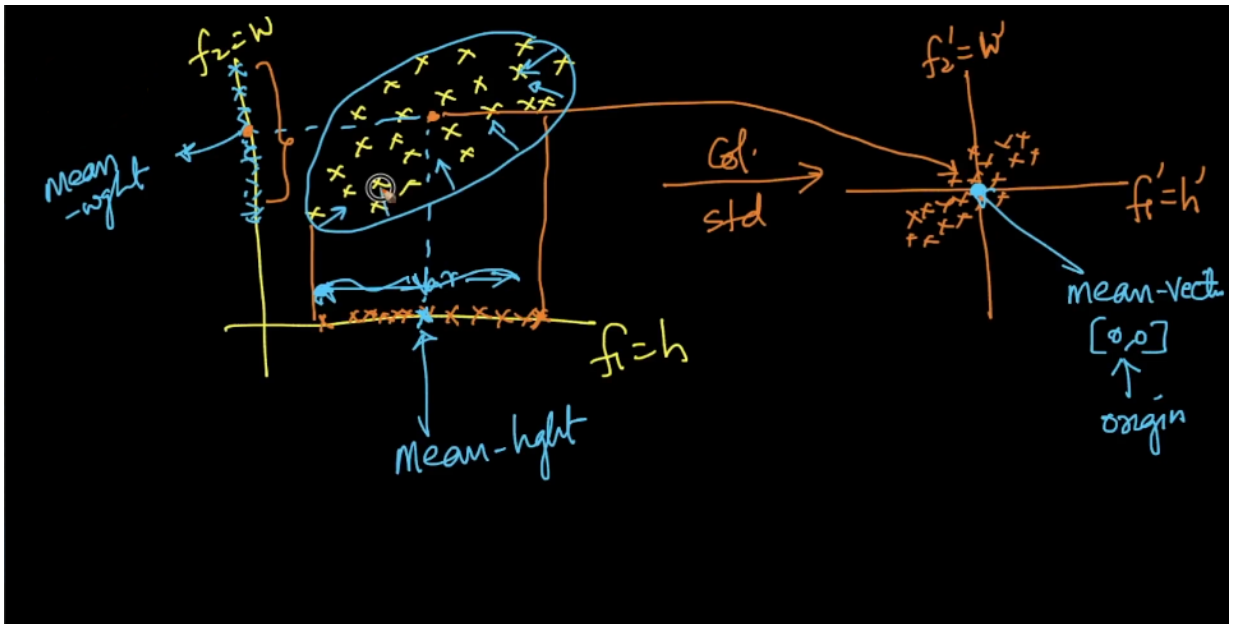 f₂=w
mean
-wght
Var
f₁=h
mean-hght
Col.
std
f₂'=w'
f₁'=h'
mean-vect
[0,0]
origin